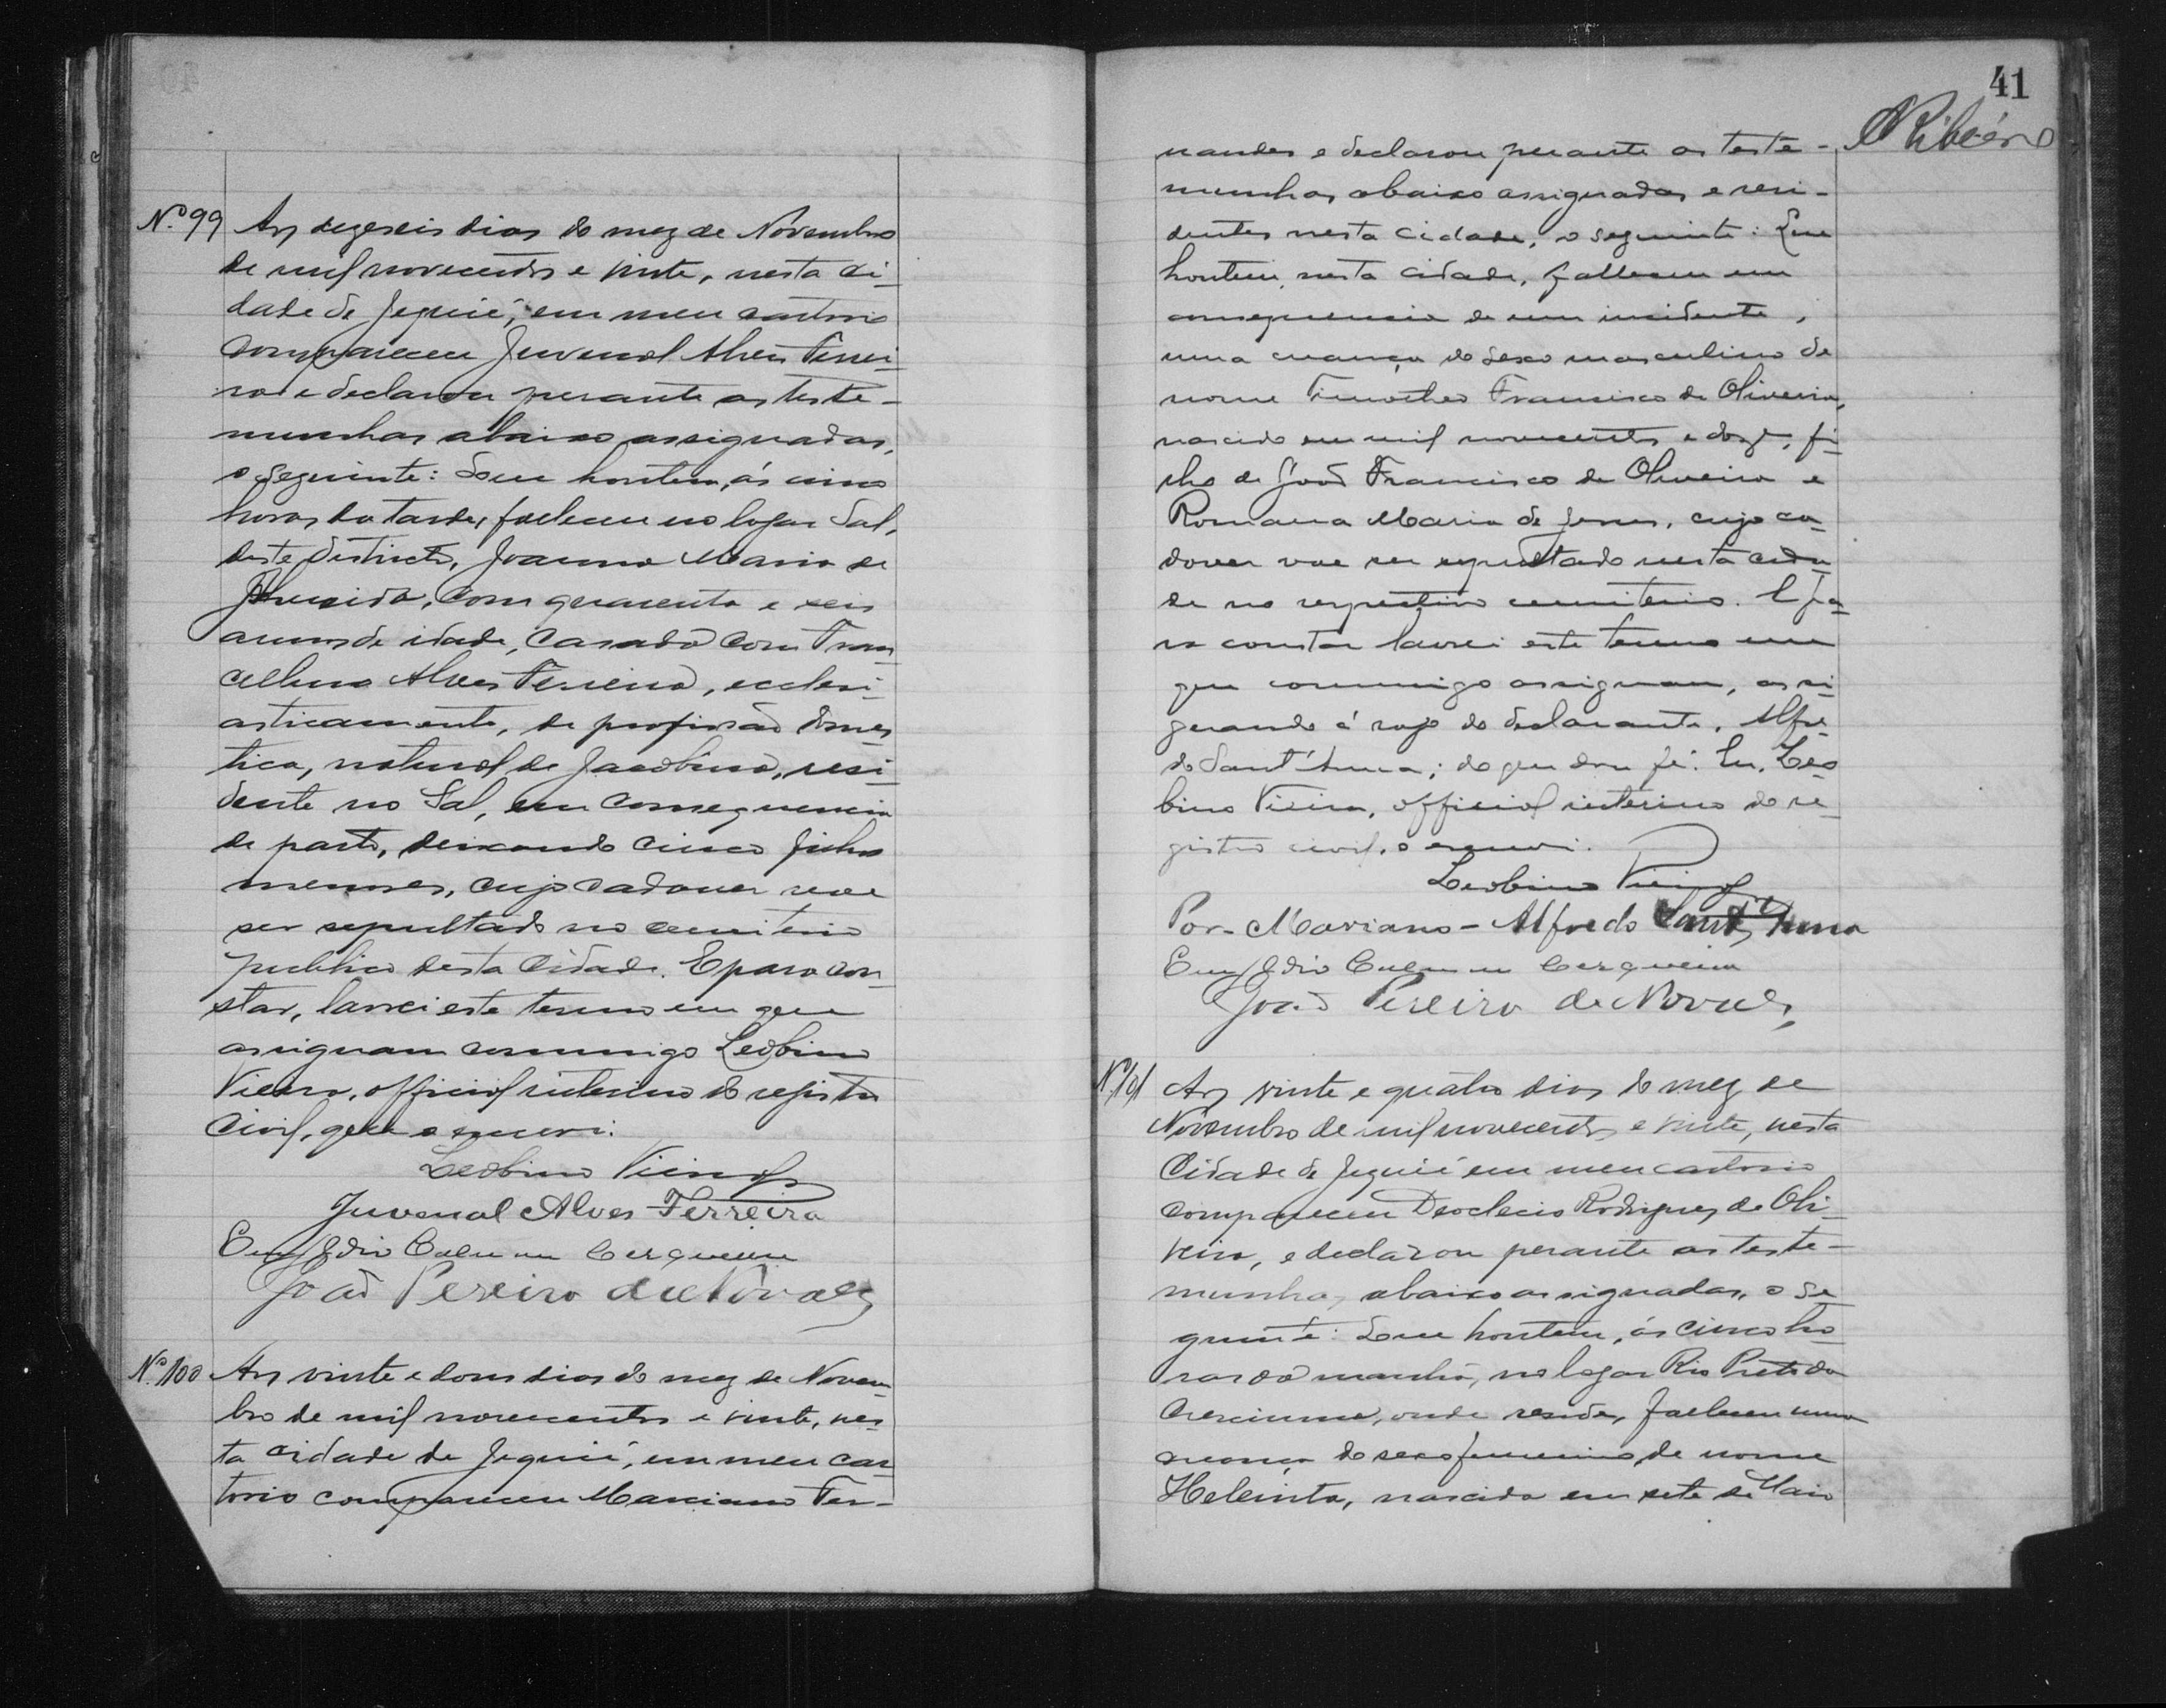 Nº 99 Aos dezeseis dias do mez de Novembro
de mil novecentos e vinte, nesta ci-
dade de Jequié, em meu cartorio
compareceu Juvenal Alves Ferrei-
ra e declarou perante as teste-
munhas abaixo assignadas,
o seguinte: Que hontem, ás cinco
horas da tarde, falleceu no logar Sal,
deste districto, Joanna Maria de
com quarenta e seis
annos de idade, casada com Fran-
cellino Alves Ferreira, ecclesi-
asticamente, de profissão domes-
tica, natural de Jacobina, resi-
dente no Sal, em consequencia
de parto, deixando cinco filhos
menores, cujo cadaver vae
ser sepultado no cemiterio
publico desta cidade. E para con-
star, lavrei este termo em que
assignam commigo Leobino
Vieira, official interino do registro
civil, que o escrevi.
Leobino Vieira
Juvenal Alves Ferreira
Cerqueira
João Pereira de Novaes
Nº 100 Aos vinte e dous dias do mez de Novem-
bro de mil novecentos e vinte, nes-
ta cidade de Jequié, em meu car-
torio compareceu Marciano Fer-
41
ARibeiro
nandes e declarou perante as teste-
munhas abaixo assignadas e resi-
dentes nesta cidade, o seguinte: Que
hontem, nesta cidade, falleceu em
consequencia de um incidente,
uma creança do sexo masculino de
nome Timotheo Francisco de Oliveira,
nascido em mil novecentos e doze, fi-
lho de João Francisco de Oliveira e
Romana Maria de Jesus, cujo ca-
daver vae ser sepultado nesta cida-
de no respectivo cemiterio. E pa-
ra constar lavrei este termo em
que commigo assignam, assi-
gnando á rogo do declarante, Alfre-
do Sant'Anna; do que dou fé. Eu, Leo-
bino Vieira, official interino do re-
gistro civil, o escrevi.
Leobino Vieira
Por Mariano - Alfredo Sant'Anna
Cerqueira
João Pereira de Novaes
Nº 101 Aos vinte e quatro dias do mez de
Novembro de mil novecentos e vinte, nesta
Cidade de Jequié em meu cartorio
compareceu Deoclecio Rodrigues de Oli-
veira, e declarou perante as teste-
munhas abaixo assignadas, o se-
guinte: Que hontem, ás cinco ho-
ras da manhã, no logar Rio Preto do
Cresciuma, onde reside, falleceu uma
creança do sexo femenino, de nome
Heleinta, nascida em sete de Maio